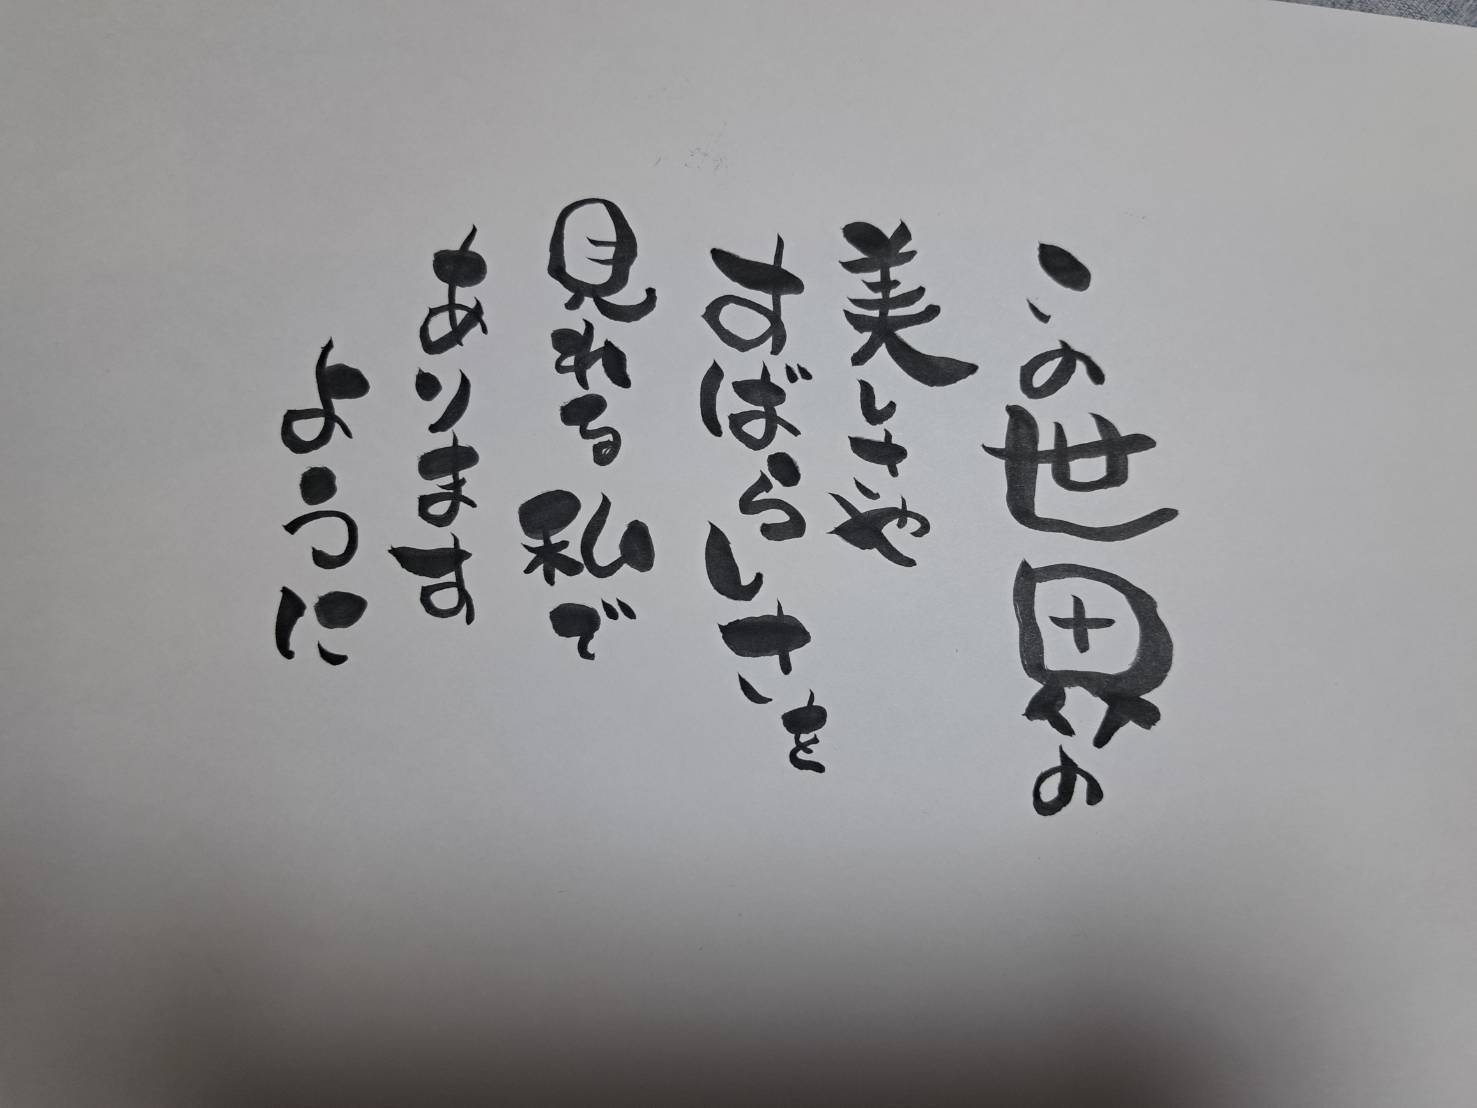 この世界の
美しさや
すばらしさを
見れる私で
あります
ように